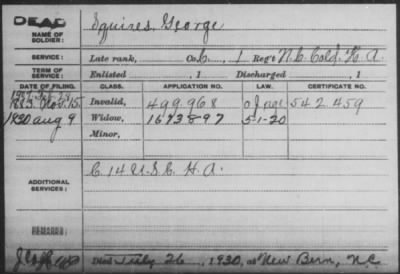 DEAD
NAME OF SOLDIER: Squires, George
SERVICE: Late rank, Co. C, 1 Reg't N.C. Cold. H. A.
TERM OF SERVICE: Enlisted , 1 Discharged , 1
DATE OF FILING. CLASS. APPLICATION NO. LAW. CERTIFICATE NO.
1883 Nov. 15 Invalid, 499968 542459
1930 Aug 9 Widow, 1673897 5-1-20
Minor,
C. 14 U.S.C. H.A.
ADDITIONAL SERVICES:
REMARKS:
Died July 26, 1930, at New Bern, N.C.